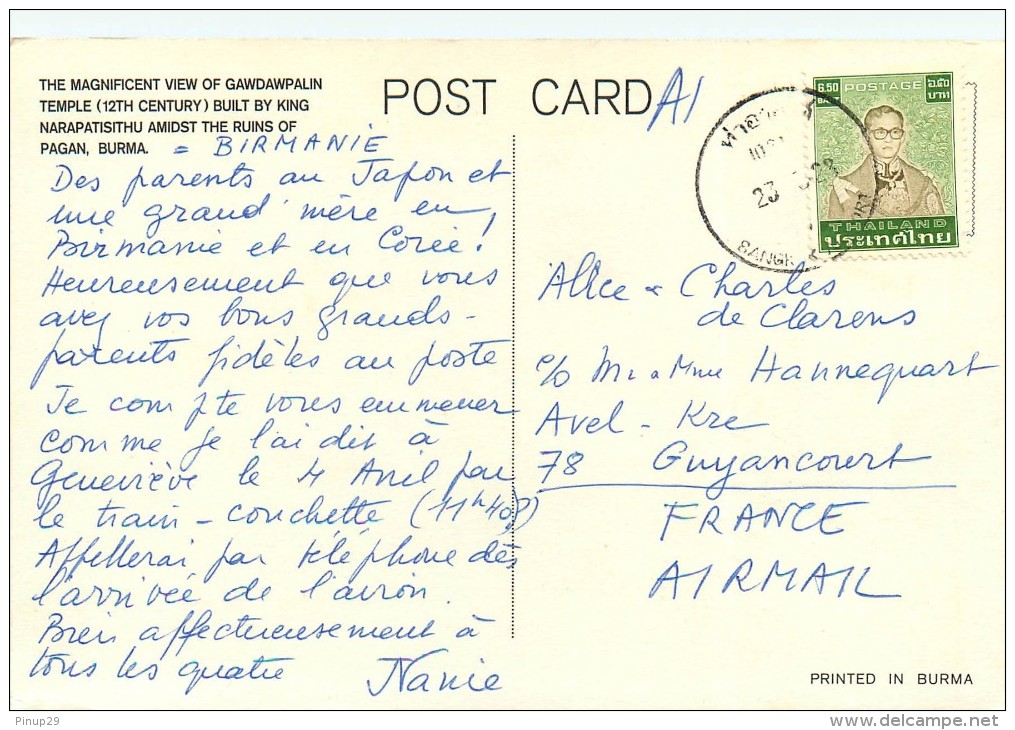 THE MAGNIFICENT VIEW OF GAWDAWPALIN
TEMPLE (12TH CENTURY) BUILT BY KING
NARAPATISITHU AMIDST THE RUINS OF
PAGAN, BURMA. = BIRMANIE
POST CARD A1
6.50 POSTAGE ๖.๕๐
บาท
THAILAND
ประเทศไทย
23
Des parents au Japon et
une grand'mère en
Birmanie et en Corée!
Heureusement que vous
avez vos bons grands-
parents fidèles au poste
Je compte vous emmener
comme je l'ai dit à
Geneviève le 4 Avril par
le train-couchette (11h40)
Appellerai par téléphone dès
l'arrivée de l'avion.
Bien affectueusement à
tous les quatre
Nanie
Alice & Charles
de Clarens
c/o Mr & Mme Hannequart
Avel-Kre
78 Guyancourt
FRANCE
AIRMAIL
PRINTED IN BURMA
Pinup29
www.delcampe.net